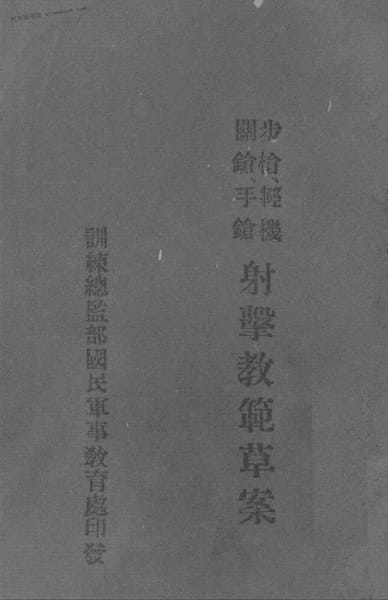 步槍、輕機
關鎗、手鎗
射擊教範草案
訓練總監部國民軍事教育處印發